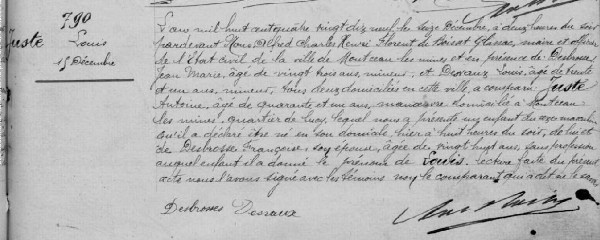 790
Juste
Louis
15 Décembre
L'an mil huit cent quatre vingt dix neuf le seize Décembre, à deux heures du soir
pardevant Nous, Alfred Charles Henri Florent de Boisset Glassac, maire et officier
de l'Etat civil de la ville de Montceau les mines et en présence de Desbrosses
Jean Marie, âgé de vingt trois ans, mineur, et Dessaux Louis, âgé de trente
et un ans, mineur, tous deux domiciliés en cette ville, a comparu Juste
Antoine, âgé de quarante et un ans, manœuvre domicilié à Montceau
les mines, quartier de Lucy, lequel nous a présenté un enfant du sexe masculin
qu'il a déclaré être né en son domicile hier à huit heures du soir, de lui et
de Desbrosse Françoise, son épouse, âgée de vingt huit ans, sans profession
auquel enfant il a donné le prénom de Louis. Lecture faite du présent
acte nous l'avons signé avec les témoins non le comparant qui a dit ne le savoir
Desbrosses Dessaux